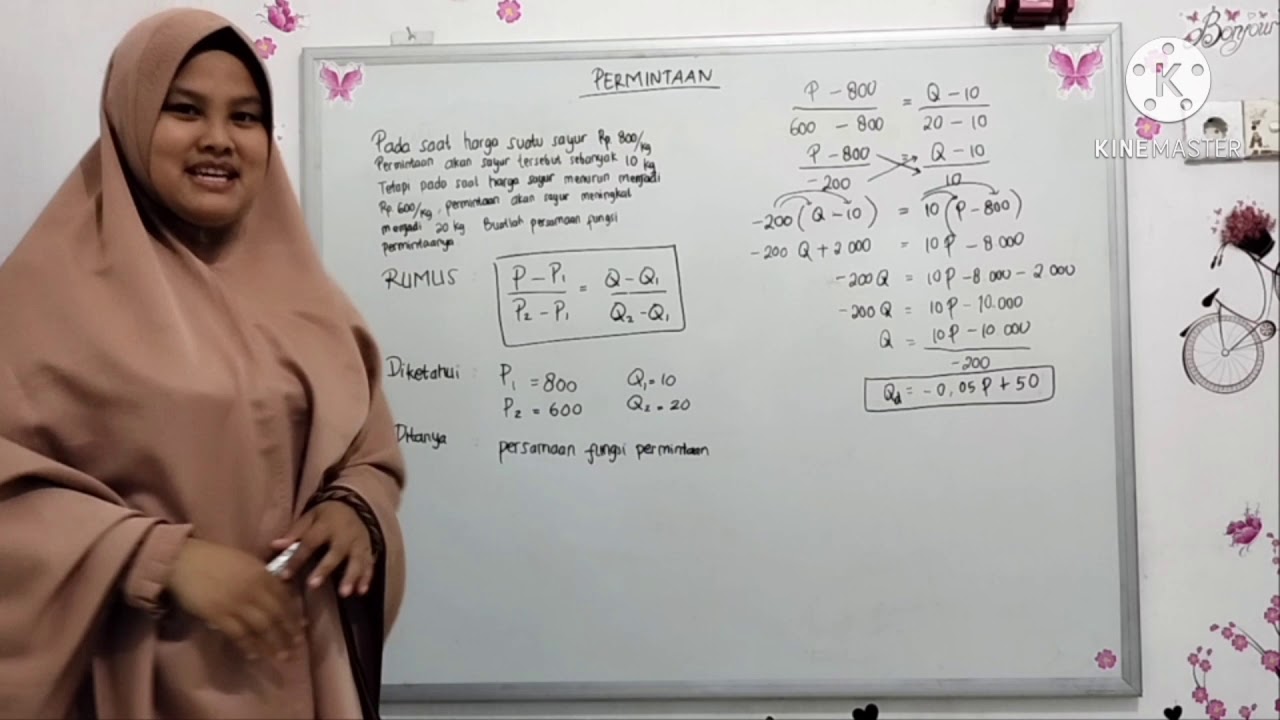 PERMINTAAN
Pada saat harga suatu sayur Rp 800/kg
Permintaan akan sayur tersebut sebanyak 10 kg
Tetapi pada saat harga sayur menurun menjadi
Rp 600/kg, permintaan akan sayur meningkat
menjadi 20 kg Buatlah persamaan fungsi
permintaanya
RUMUS :
P - P₁ / P₂ - P₁ = Q - Q₁ / Q₂ - Q₁
Diketahui : P₁ = 800 Q₁ = 10
P₂ = 600 Q₂ = 20
Ditanya : persamaan fungsi permintaan
P - 800 / 600 - 800 = Q - 10 / 20 - 10
P - 800 / -200 = Q - 10 / 10
-200 (Q - 10) = 10 (P - 800)
-200 Q + 2000 = 10P - 8000
-200Q = 10P - 8000 - 2000
-200 Q = 10P - 10.000
Q = 10P - 10 000 / -200
Qd = -0,05P + 50
Bonjour
K
KINEMASTER